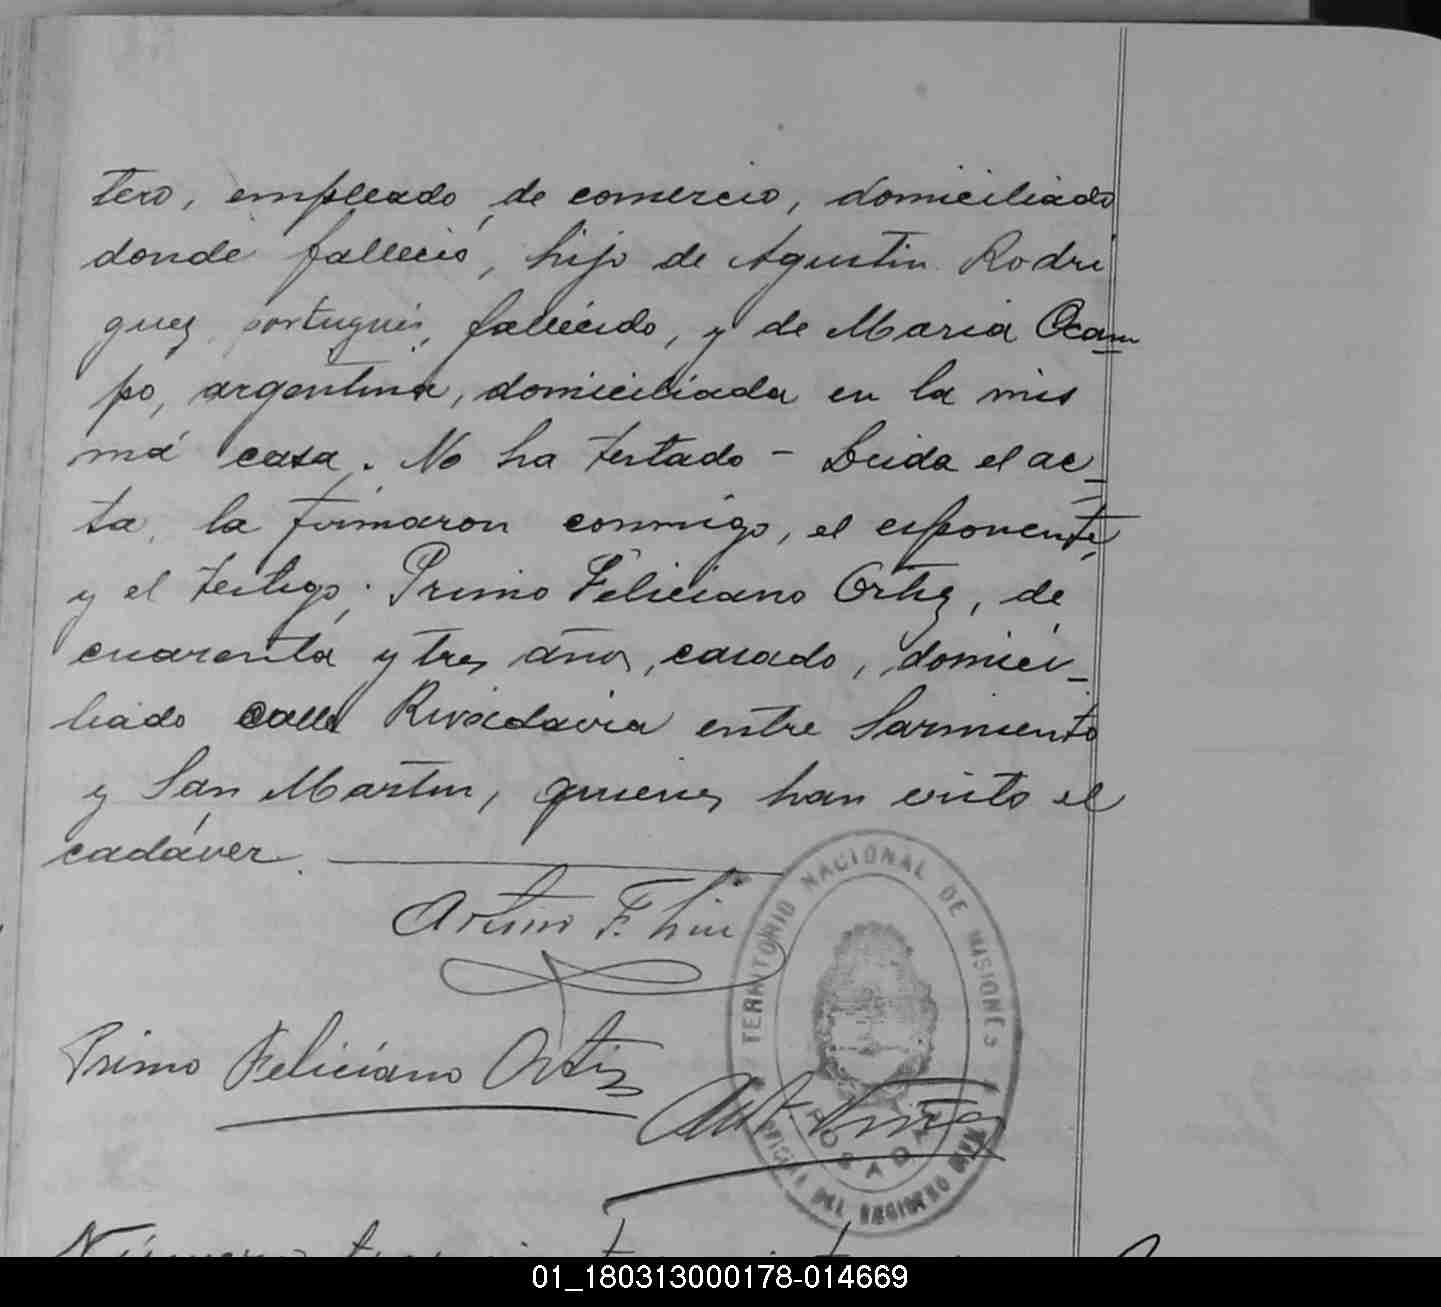 tero, empleado de comercio, domiciliado
donde falleció, hijo de Agustin Rodri
guez, portugués, fallecido, y de Maria Ocam
po, argentina, domiciliada en la mis
ma casa. No ha testado - Leida el ac_
ta, la firmaron conmigo, el esponente,
y el testigo: Primo Feliciano Ortiz, de
cuarenta y tres años, casado, domici_
liado calle Rivadavia entre Sarmiento
y San Martin, quienes han visto el
cadáver.
Arturo F.
Primo Feliciano Ortiz
TERRITORIO NACIONAL DE MISIONES
POSADAS
OFICINA DEL REGISTRO CIVIL
Número
01_180313000178-014669